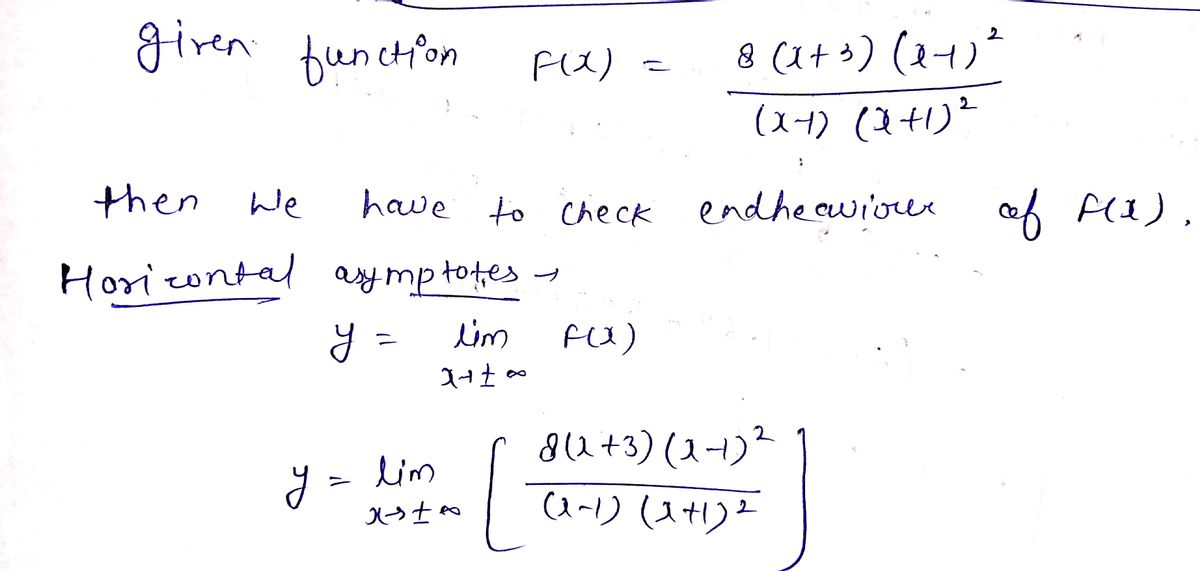 given function F(x) = 8 (x+3) (x-1)²
(x-1) (x+1)²
then we have to check endheawiour of F(x).
Horizontal asymptotes →
y = lim F(x)
x→±∞
y = lim [ 8(x+3) (x-1)²
x→±∞ (x-1) (x+1)² ]